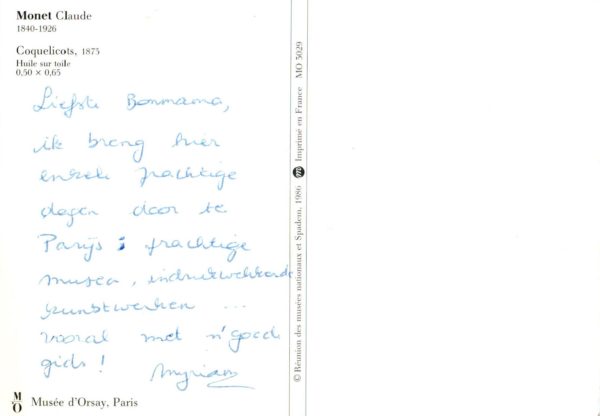 Monet Claude
1840-1926
Coquelicots, 1873
Huile sur toile
0,50 × 0,65
Liefste Bonmama,
ik breng hier
enkele prachtige
dagen door te
Parijs : prachtige
musea, indrukwekkende
kunstwerken ...
vooral met n' goede
gids !
Myriam
Musée d'Orsay, Paris
© Réunion des musées nationaux et Spadem, 1986
Imprimé en France MO 5029